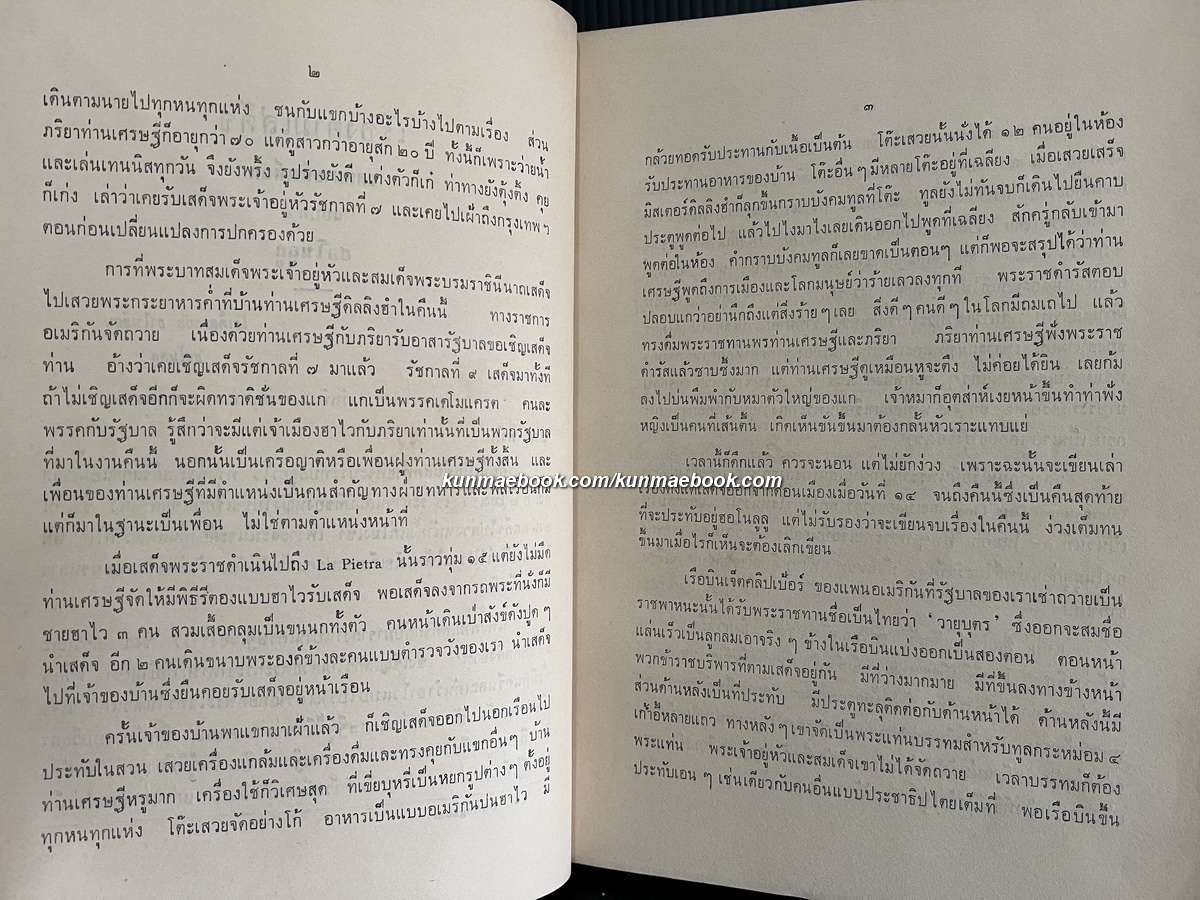 ๒
เดินตามนายไปทุกหนทุกแห่ง ชนกับแขกบ้างอะไรบ้างไปตามเรื่อง ส่วน
ภริยาท่านเศรษฐีก็อายุกว่า ๗๐ แต่ดูสาวกว่าอายุสัก ๒๐ ปี ทั้งนี้ก็เพราะว่ายน้ำ
และเล่นเทนนิสทุกวัน จึงยังพริ้ง รูปร่างยังดี แต่งตัวก็เก๋ ท่าทางยังตุ้งติ้ง คุย
ก็เก่ง เล่าว่าเคยรับเสด็จพระเจ้าอยู่หัวรัชกาลที่ ๗ และเคยไปเฝ้าถึงกรุงเทพฯ
ตอนก่อนเปลี่ยนแปลงการปกครองด้วย
การที่พระบาทสมเด็จพระเจ้าอยู่หัวและสมเด็จพระบรมราชินีนาถเสด็จ
ไปเสวยพระกระยาหารค่ำที่บ้านท่านเศรษฐีดิลลิงฮำในคืนนี้ ทางราชการ
อเมริกันจัดถวาย เนื่องด้วยท่านเศรษฐีกับภริยารับอาสารัฐบาลขอเชิญเสด็จ
ท่าน อ้างว่าเคยเชิญเสด็จรัชกาลที่ ๗ มาแล้ว รัชกาลที่ ๙ เสด็จมาทั้งที
ถ้าไม่เชิญเสด็จอีกก็จะผิดทราดิชั่นของแก แกเป็นพรรคเดโมแครต คนละ
พรรคกับรัฐบาล รู้สึกว่าจะมีแต่เจ้าเมืองฮาไวกับภริยาเท่านั้นที่เป็นพวกรัฐบาล
ที่มาในงานคืนนี้ นอกนั้นเป็นเครือญาติหรือเพื่อนฝูงท่านเศรษฐีทั้งสิ้น และ
เพื่อนของท่านเศรษฐีที่มีตำแหน่งเป็นคนสำคัญทางฝ่ายทหารและพลเรือนก็มี
แต่ก็มาในฐานะเป็นเพื่อน ไม่ใช่ตามตำแหน่งหน้าที่
เมื่อเสด็จพระราชดำเนินไปถึง La Pietra นั้นราวทุ่ม ๑๕ แต่ยังไม่มืด
ท่านเศรษฐีจัดให้มีพิธีรีตองแบบฮาไวรับเสด็จ พอเสด็จลงจากรถพระที่นั่งก็มี
ชายฮาไว ๓ คน สวมเสื้อคลุมเป็นขนนกทั้งตัว คนหน้าเดินเป่าสังข์ดังปูดๆ
นำเสด็จ อีก ๒ คนเดินขนาบพระองค์ข้างละคนแบบตำรวจวังของเรา นำเสด็จ
ไปที่เจ้าของบ้านซึ่งยืนคอยรับเสด็จอยู่หน้าเรือน
ครั้นเจ้าของบ้านพาแขกมาเฝ้าแล้ว ก็เชิญเสด็จออกไปนอกเรือนไป
ประทับในสวน เสวยเครื่องแกล้มและเครื่องดื่มและทรงคุยกับแขกอื่นๆ บ้าน
ท่านเศรษฐีหรูมาก เครื่องใช้ก็วิเศษสุด ที่เขี่ยบุหรี่เป็นหยกรูปต่างๆ ตั้งอยู่
ทุกหนทุกแห่ง โต๊ะเสวยจัดอย่างโก้ อาหารเป็นแบบอเมริกันปนฮาไว มี
๓
กล้วยทอดรับประทานกับเนื้อเป็นต้น โต๊ะเสวยนั้นนั่งได้ ๑๒ คนอยู่ในห้อง
รับประทานอาหารของบ้าน โต๊ะอื่นๆ มีหลายโต๊ะอยู่ที่เฉลียง เมื่อเสวยเสร็จ
มิสเตอร์ดิลลิงฮำก็ลุกขึ้นกราบบังคมทูลที่โต๊ะ ทูลยังไม่ทันจบก็เดินไปยืนคาบ
ประตูพูดต่อไป แล้วไปไงมาไงเลยเดินออกไปพูดที่เฉลียง สักครู่กลับเข้ามา
พูดต่อในห้อง คำกราบบังคมทูลก็เลยขาดเป็นตอนๆ แต่ก็พอจะสรุปได้ว่าท่าน
เศรษฐีพูดถึงการเมืองและโลกมนุษย์ว่าร้ายเลวลงทุกที พระราชดำรัสตอบ
ปลอบแกว่าอย่านึกถึงแต่สิ่งร้ายๆ เลย สิ่งดีๆ คนดีๆ ในโลกมีถมเถไป แล้ว
ทรงดื่มพระราชทานพรท่านเศรษฐีและภริยา ภริยาท่านเศรษฐีฟังพระราช
ดำรัสแล้วซาบซึ้งมาก แต่ท่านเศรษฐีดูเหมือนหูจะตึง ไม่ค่อยได้ยิน เลยก้ม
ลงไปบ่นพึมพำกับหมาตัวใหญ่ของแก เจ้าหมาก็อุตส่าห์เงยหน้าขึ้นทำท่าฟัง
หญิงเป็นคนที่เส้นตื้น เกิดเห็นขันขึ้นมาต้องกลั้นหัวเราะแทบแย่
เวลานี้ก็ดึกแล้ว ควรจะนอน แต่ไม่ยักง่วง เพราะฉะนั้นจะเขียนเล่า
เรื่องตั้งแต่เสด็จออกจากดอนเมืองเมื่อวันที่ ๑๔ จนถึงคืนนี้ซึ่งเป็นคืนสุดท้าย
ที่จะประทับอยู่ฮอโนลูลู แต่ไม่รับรองว่าจะเขียนจบเรื่องในคืนนี้ ง่วงเต็มทน
ขึ้นมาเมื่อไรก็เห็นจะต้องเลิกเขียน
เรือบินเจ็ตคลิปเป้อร์ ของแพนอเมริกันที่รัฐบาลของเราเช่าถวายเป็น
ราชพาหนะนั้นได้รับพระราชทานชื่อเป็นไทยว่า ‘วายุบุตร’ ซึ่งออกจะสมชื่อ
แล่นเร็วเป็นลูกลมเอาจริงๆ ข้างในเรือบินแบ่งออกเป็นสองตอน ตอนหน้า
พวกข้าราชบริพารที่ตามเสด็จอยู่กัน มีที่ว่างมากมาย มีที่ขึ้นลงทางข้างหน้า
ส่วนด้านหลังเป็นที่ประทับ มีประตูทะลุติดต่อกับด้านหน้าได้ ด้านหลังนี้มี
เก้าอี้หลายแถว ทางหลังๆ เขาจัดเป็นพระแท่นบรรทมสำหรับทูลกระหม่อม ๔
พระแท่น พระเจ้าอยู่หัวและสมเด็จเขาไม่ได้จัดถวาย เวลาบรรทมก็ต้อง
ประทับเอนๆ เช่นเดียวกับคนอื่นแบบประชาธิปไตยเต็มที่ พอเรือบินขึ้น
kunmaebook.com/kunmaebook.com